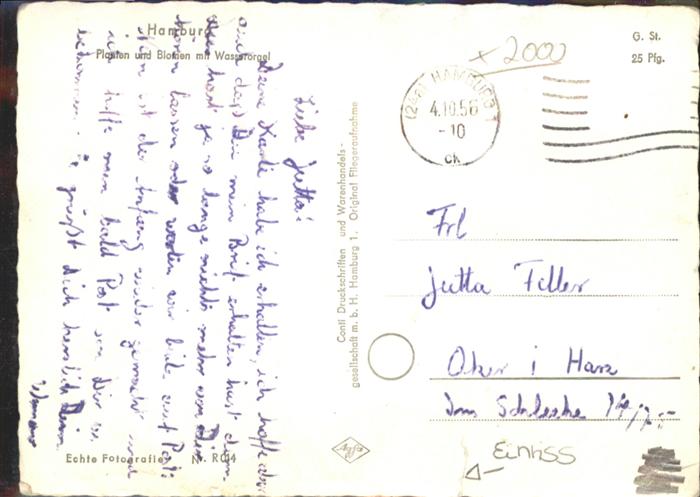 Hamburg
Planten und Blomen mit Wasserorgel
G. St.
25 Pfg.
x 2000
(24a) HAMBURG 1
4.10.56
-10
ck
Liebe Jutta!
Deine Karte habe ich erhalten, ich hoffe aber
auch dass Du mein Brief erhalten hast denn
Du hast ja so lange nichts mehr von Dir
hören lassen oder warten wir beide auf Post
Nun ist der Anfang wieder gemacht und
ich hoffe nun bald Post von Dir zu
bekommen. Es grüßt Dich herzlich Dein
Conti Druckschriften und Warenhandels-
gesellschaft m. b. H. Hamburg 1. Original Fliegeraufnahme
Frl
Jutta Filler
Oker i Harz
Im Schleeke
Agfa
EinRiSS
Echte Fotografie Nr. R014